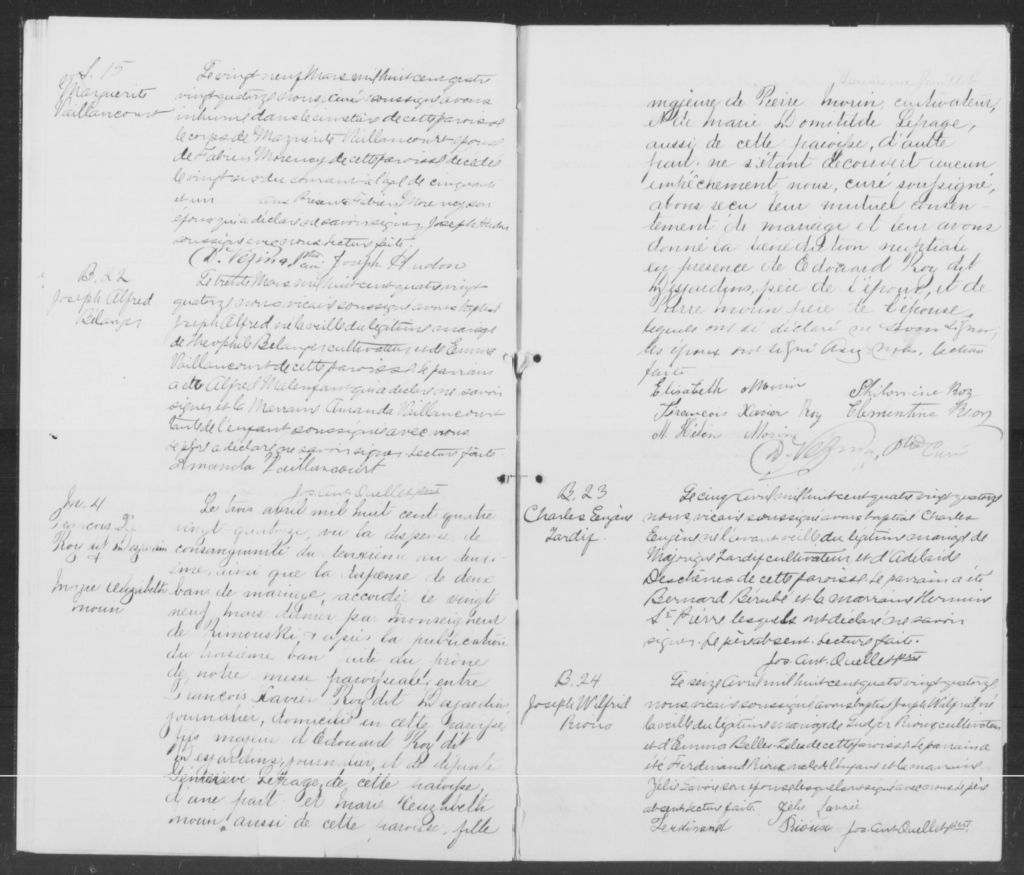 S. 15
Marguerite
Vaillancourt
Le vingt neuf Mars mil huit cent quatre
vingt quatorze nous, curé soussigné avons
inhumé dans le cimetière de cette paroisse
le corps de Marguerite Vaillancourt épouse
de Fabien Morency de cette paroisse décédée
le vingt du courant à l'age de cinquante
et un ans Présents Fabien Morency son
époux qui a déclaré ne savoir signer, Joseph Hudon
soussigné avec nous lecture faite.
D. Vézina, Ptre Curé Joseph Hudon
B. 22
Joseph Alfred
Bélanger
Le trente Mars mil huit cent quatre vingt
quatorze nous vicaire soussigné avons baptisé
Joseph Alfred né la veille du légitime mariage
de Théophile Bélanger cultivateur et de Emma
Vaillancourt de cette paroisse Le parrain
a été Alfred Malenfant qui a déclaré ne savoir
signer et la Marraine Amanda Vaillancourt
tante de l'enfant soussignée avec nous
Le père a déclaré ne savoir signer Lecture faite
Amanda Vaillancourt
Jos Ant. Ouellet ptre
M. 4
François X.
Roy dit Desjardins
Marie Elizabeth
Morin
Le trois avril mil huit cent quatre
vingt quatorze, vu la dispense de
consanguinité du troisième au troisi-
ème, ainsi que la dispense de deux
bans de mariage, accordée le vingt
neuf mars dernier par Monseigneur
de Rimouski, & après la publication
du troisième ban faite du prône
de notre messe paroissiale, entre
François Xavier Roy dit Desjardins,
journalier, domicilié en cette paroisse,
fils majeur d'Edouard Roy dit
Desjardins, journalier, et de défunte
Geneviève Lepage, de cette paroisse,
d'une part; et Marie Elizabeth
Morin, aussi de cette paroisse, fille
majeure de Pierre Morin, cultivateur,
et de Marie Domitilde Lepage,
aussi de cette paroisse, d'autre
part: ne s'étant découvert aucun
empêchement nous, curé soussigné,
avons reçu leur mutuel consen-
tement de mariage et leur avons
donné la bénédiction nuptiale
en présence de Edouard Roy dit
Desjardins, père de l'époux, et de
Pierre Morin père de l'épouse,
lesquels ont dé déclaré ne savoir signer,
les époux ont signé avec nous. Lecture
faite
Elisabeth Morin Philomine Roy
Francois Xavier Roy Clementine Roy
M. Hélène Morin
D. Vézina, Ptre Curé
B. 23
Charles Eugène
Tardif.
Le cinq Avril mil huit cent quatre vingt quatorze
nous, vicaire soussigné avons baptisé Charles
Eugène né l'avant veille du légitime mariage de
Tardif cultivateur et d'Adélaide
Deschènes de cette paroisse. Le parrain a été
Bernard Bérubé et la marraine Hermine
St Pierre lesquels ont déclaré ne savoir
signer. Le père absent. Lecture faite.
Jos. Ant. Ouellet ptre
B. 24
Joseph Wilfrid
Rioux
Le seize Avril mil huit cent quatre vingt quatorze
nous vicaire soussigné avons baptisé Joseph Wilfrid né
la veille du légitime mariage de Rioux cultivateur
et d'Emma Belles-Isles de cette paroisse Le parrain a
été Ferdinand Rioux oncle de l'enfant et la marraine
Zélie Lavoie son épouse lesquels ont signé avec nous le père
absent lecture faite. Zélie Lavoie
Ferdinand Rioux Jos Ant Ouellet ptre